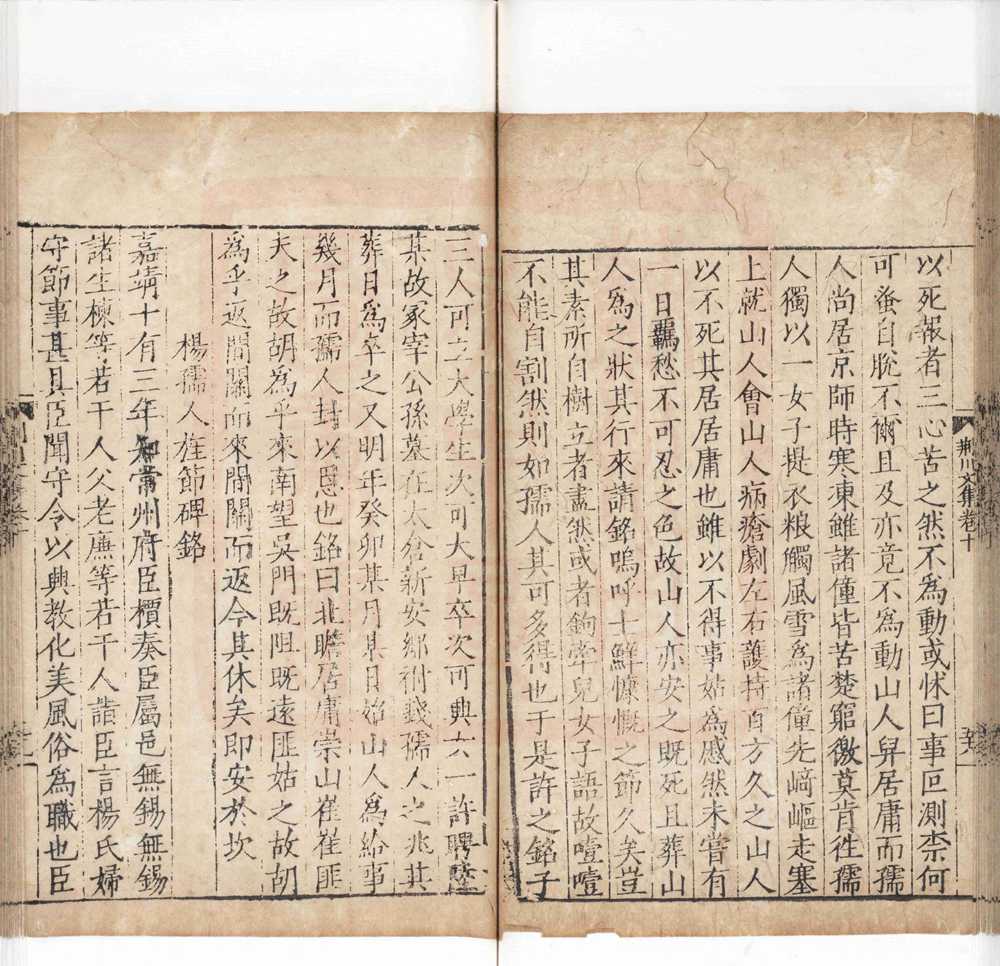 以死報者三心苦之然不為動或怵曰事叵測柰何
可蚤自脫不爾且及亦竟不為動山人舁居庸而孺
人尚居京師時寒凍雖諸僮皆苦楚窮徼莫肯徃孺
人獨以一女子提衣粮觸風雪為諸僮先崎嶇走塞
上就山人會山人病瘡劇左右護持百方久之山人
以不死其居居庸也雖以不得事姑為慼然未嘗有
一日羈愁不可忍之色故山人亦安之既死且葬山
人為之狀其行來請銘嗚呼士鮮慷慨之節久矣豈
其素所自樹立者盡然或者鉤牽兒女子語故噎噎
不能自割然則如孺人其可多得也于是許之銘子
荊川文集卷十
三人可立大學生次可大早卒次可典女一許聘陸
某故冡宰公孫墓在太倉新安鄉祔錢孺人之兆其
葬日為卒之又明年癸卯某月某日始山人為給事
幾月而孺人封以恩也銘曰北瞻居庸崇山崔崔匪
夫之故胡為乎來南望吳門既阻既遠匪姑之故胡
為乎返間關而來間關而返今其休矣即安於坎
楊孺人旌節碑銘
嘉靖十有三年知常州府臣檟奏臣屬邑無錫無錫
諸生棟等若干人父老廡等若干人詣臣言楊氏婦
守節事甚具臣聞守令以興教化美風俗為職也臣